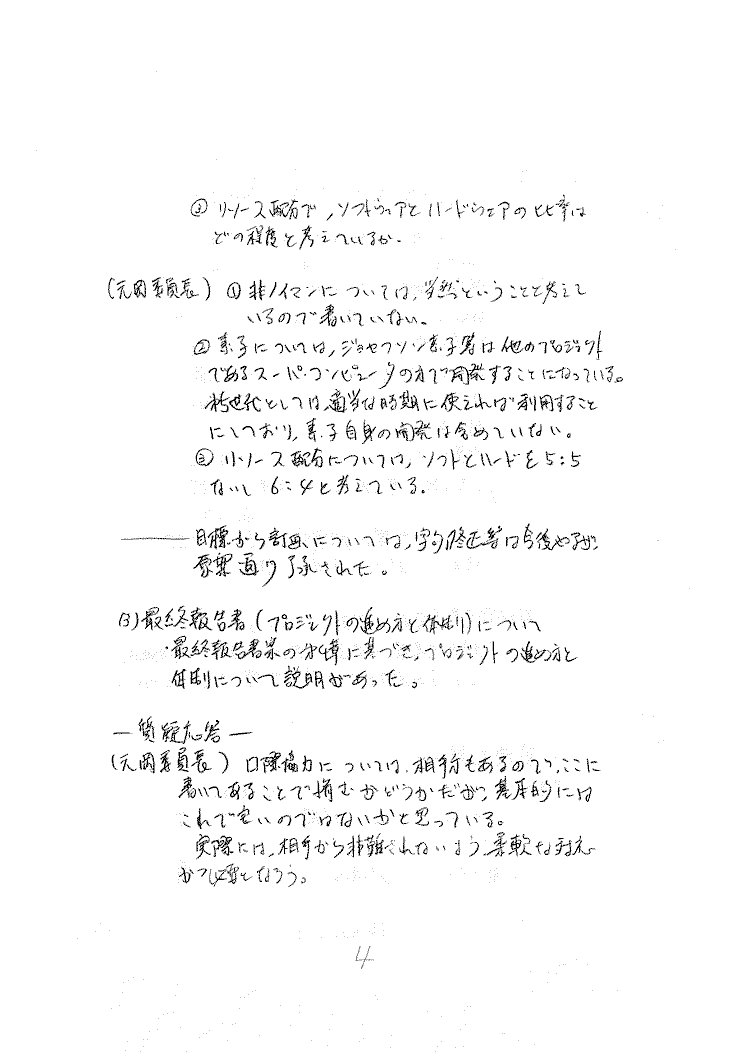 ③ リソース配分で、ソフトウェアとハードウェアの比率は
どの程度と考えているか。
(元岡委員長) ① 非ノイマンについては、当然ということと考えて
いるので書いていない。
② 素子については、ジョセフソン素子等は他のプロジェクト
であるスーパーコンピュータの方で開発することになっている。
新世代としては、適当な時期に使えれば利用すること
にしており、素子自身の開発は含めていない。
③ リソース配分については、ソフトとハードを5:5
ないし 6:4と考えている。
――― 目標から計画については、字句修正等は今後やるが、
原案通り了承された。
(3) 最終報告書(プロジェクトの進め方と体制)について
・最終報告書案の第4章に基づき、プロジェクトの進め方と
体制について説明があった。
―質疑応答―
(元岡委員長) 国際協力については、相手もあるので、ここに
書いてあることで済むかどうかだが、基本的には
これで良いのではないかと思っている。
実際には、相手から非難されないよう、柔軟な対応
が必要となろう。
4